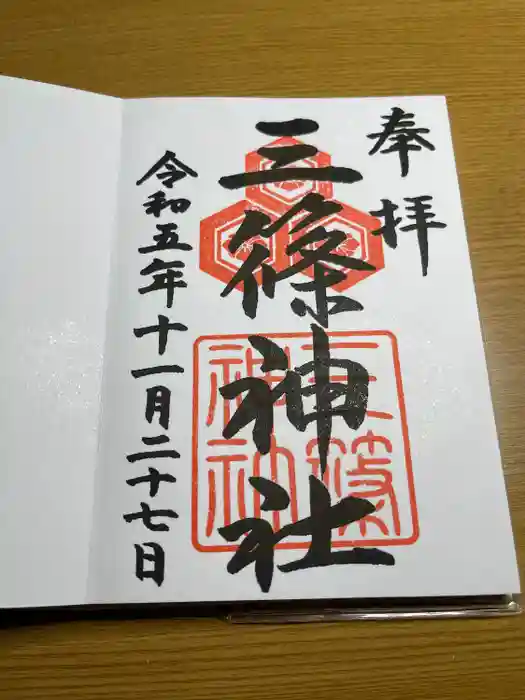 奉拝
三篠神社
三篠神社
令和五年十一月二十七日